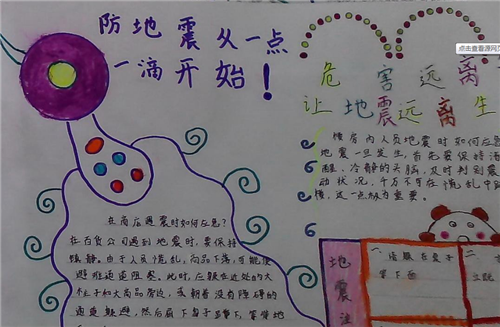 防地震从一点
一滴开始！
危害远离
让地震远离生
楼房内人员地震时如何应急?
地震一旦发生,首先要保持清
醒、冷静的头脑,及时判别震
动状况,千万不可在慌乱中
楼,这一点极为重要。
在商店遇震时如何应急?
在百货公司遇到地震时,要保持
镇静。由于人员慌乱,商品下落,可能使
避难通道阻塞。此时,应躲在近处的大
柱子和大商品旁边,或朝着没有障碍的
通道躲避,然后屈下身子蹲下,等待地
地震
一
桌子
下面
点击查看源网页